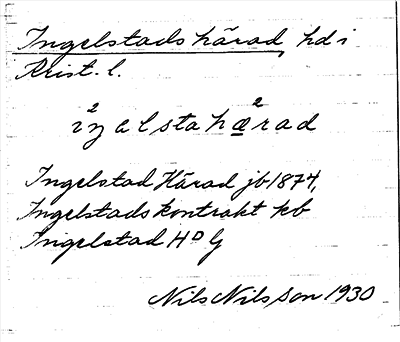 Ingelstads härad, hd i
Krist. l.
i²ŋalstahæ²rad
Ingelstad Härad jb 1874,
Ingelstads kontrakt kb
Ingelstad HD G
Nils Nilsson 1930